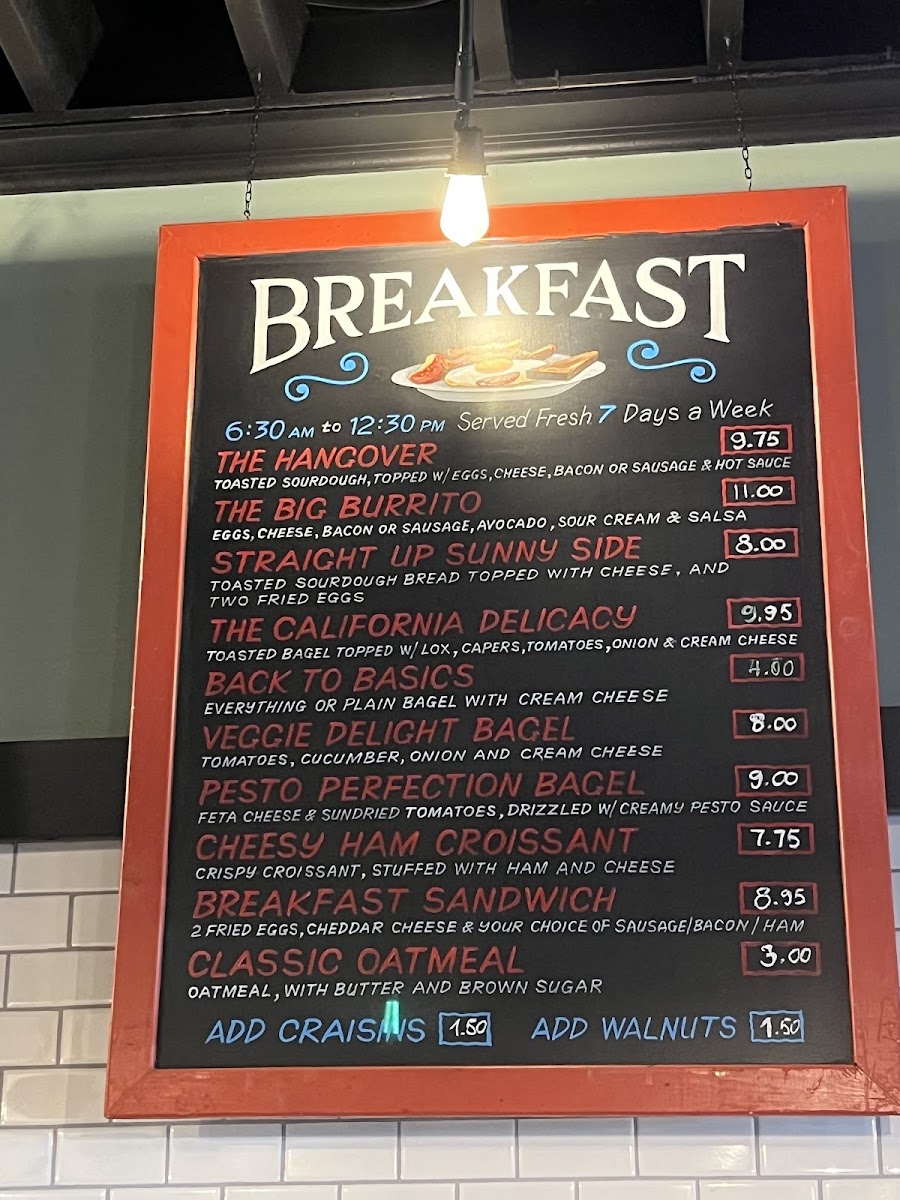 BREAKFAST
6:30 AM to 12:30 PM Served Fresh 7 Days a Week
THE HANGOVER 9.75
TOASTED SOURDOUGH, TOPPED W/ EGGS, CHEESE, BACON OR SAUSAGE & HOT SAUCE
THE BIG BURRITO 11.00
EGGS, CHEESE, BACON OR SAUSAGE, AVOCADO, SOUR CREAM & SALSA
STRAIGHT UP SUNNY SIDE 8.00
TOASTED SOURDOUGH BREAD TOPPED WITH CHEESE, AND
TWO FRIED EGGS
THE CALIFORNIA DELICACY 9.95
TOASTED BAGEL TOPPED W/ LOX, CAPERS, TOMATOES, ONION & CREAM CHEESE
BACK TO BASICS 4.00
EVERYTHING OR PLAIN BAGEL WITH CREAM CHEESE
VEGGIE DELIGHT BAGEL 8.00
TOMATOES, CUCUMBER, ONION AND CREAM CHEESE
PESTO PERFECTION BAGEL 9.00
FETA CHEESE & SUNDRIED TOMATOES, DRIZZLED W/ CREAMY PESTO SAUCE
CHEESY HAM CROISSANT 7.75
CRISPY CROISSANT, STUFFED WITH HAM AND CHEESE
BREAKFAST SANDWICH 8.95
2 FRIED EGGS, CHEDDAR CHEESE & YOUR CHOICE OF SAUSAGE/BACON/HAM
CLASSIC OATMEAL 3.00
OATMEAL, WITH BUTTER AND BROWN SUGAR
ADD CRAISINS 1.50 ADD WALNUTS 1.50